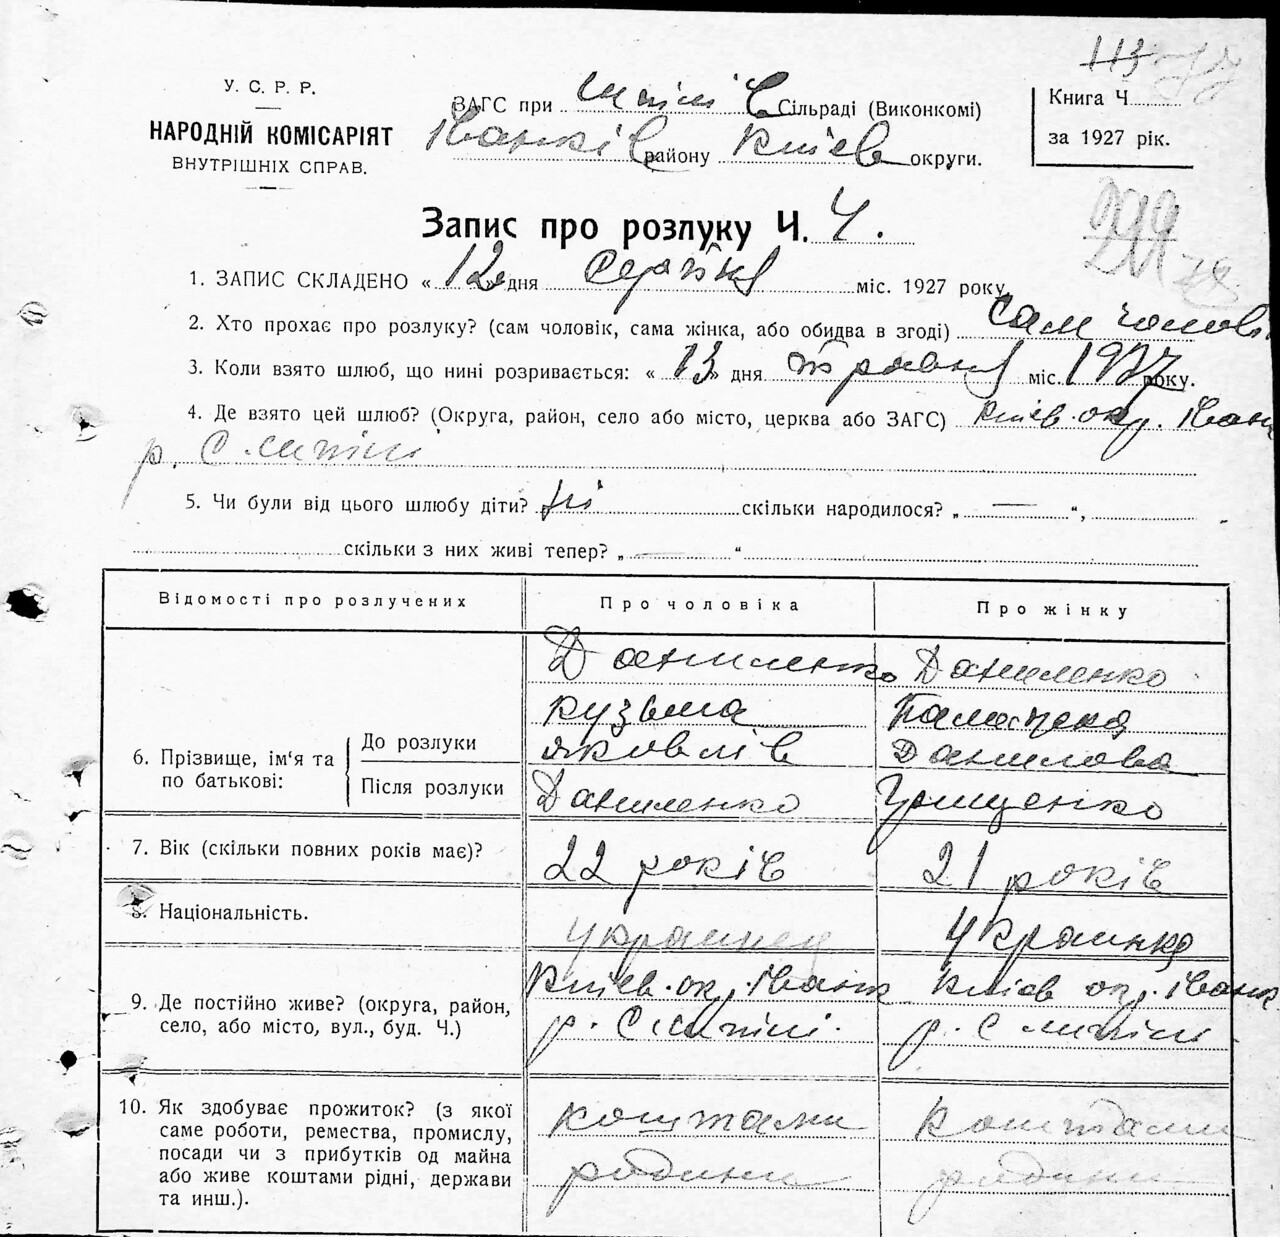 У. С. Р. Р.
НАРОДНІЙ КОМІСАРІЯТ
ВНУТРІШНІХ СПРАВ.
ЗАГС при Сільраді (Виконкомі)
Іванків району Київ округи.
Книга Ч.
за 1927 рік.
113
Запис про розлуку Ч. 4.
1. ЗАПИС СКЛАДЕНО « 12 » дня міс. 1927 року.
2. Хто прохає про розлуку? (сам чоловік, сама жінка, або обидва в згоді) сам чолов.
3. Коли взято шлюб, що нині розривається: « 13 » дня травня міс. 1927 року.
4. Де взято цей шлюб? (Округа, район, село або місто, церква або ЗАГС) Київ. окр. Іван
р. С
5. Чи були від цього шлюбу діти? ні скільки народилося? „ — “,
скільки з них живі тепер? „ — “
Відомості про розлучених Про чоловіка Про жінку
6. Прізвище, ім‘я та по батькові:
До розлуки
Даниленко
Кузьма
Яковлів
Даниленко
Данилова
Після розлуки
Даниленко
Грищенко
7. Вік (скільки повних років має)? 22 років 21 років
8. Національність. українец українка
9. Де постійно живе? (округа, район,
село, або місто, вул., буд. Ч.)
Київ. окр. Іванк
р. С
Київ окр. Іванк
р. С
10. Як здобуває прожиток? (з якої
саме роботи, ремества, промислу,
посади чи з прибутків од майна
або живе коштами рідні, держави
та инш.).
коштами
родини
коштами
родини